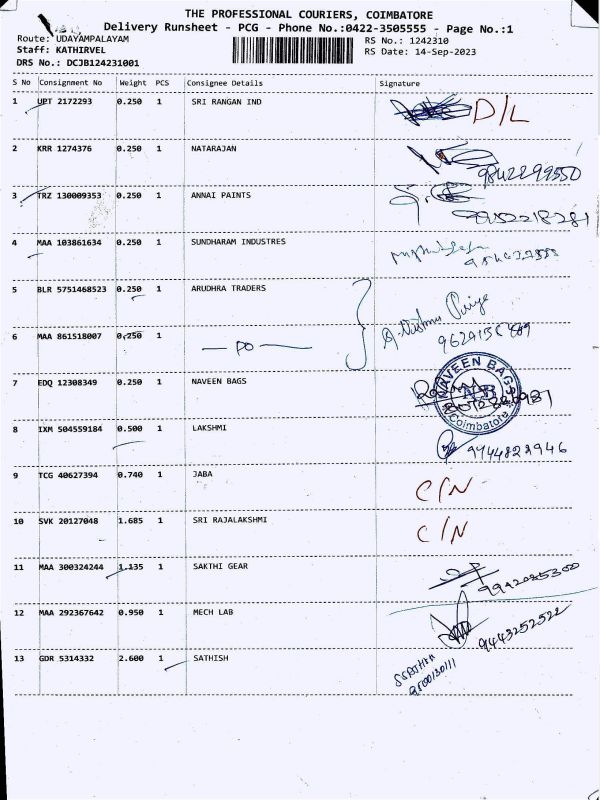 THE PROFESSIONAL COURIERS, COIMBATORE
Delivery Runsheet - PCG - Phone No.:0422-3505555 - Page No.:1
Route: UDAYAMPALAYAM RS No.: 1242310
Staff: KATHIRVEL RS Date: 14-Sep-2023
DRS No.: DCJB124231001
S No Consignment No Weight PCS Consignee Details Signature
1 UPT 2172293 0.250 1 SRI RANGAN IND D/L
2 KRR 1274376 0.250 1 NATARAJAN
9842299550
3 TRZ 130009353 0.250 1 ANNAI PAINTS
9952218281
4 MAA 103861634 0.250 1 SUNDHARAM INDUSTRES
5 BLR 5751468523 0.250 1 ARUDHRA TRADERS
6 MAA 861518007 0.250 1 — PO —
7 EDQ 12308349 0.250 1 NAVEEN BAGS NAVEEN BAGS
NB
Coimbatore
8 IXM 504559184 0.500 1 LAKSHMI
9944822946
9 TCG 40627394 0.740 1 JABA C/N
10 SVK 20127048 1.685 1 SRI RAJALAKSHMI C/N
11 MAA 300324244 1.135 1 SAKTHI GEAR
12 MAA 292367642 0.950 1 MECH LAB
9443252522
13 GDR 5314332 2.600 1 SATHISH